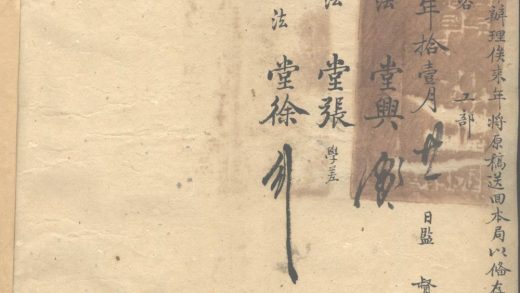 辦理俟來年將原稿送回本局以俻存
咨
工部
年拾壹月廿日監督
法堂興
法堂張學差
法堂徐行